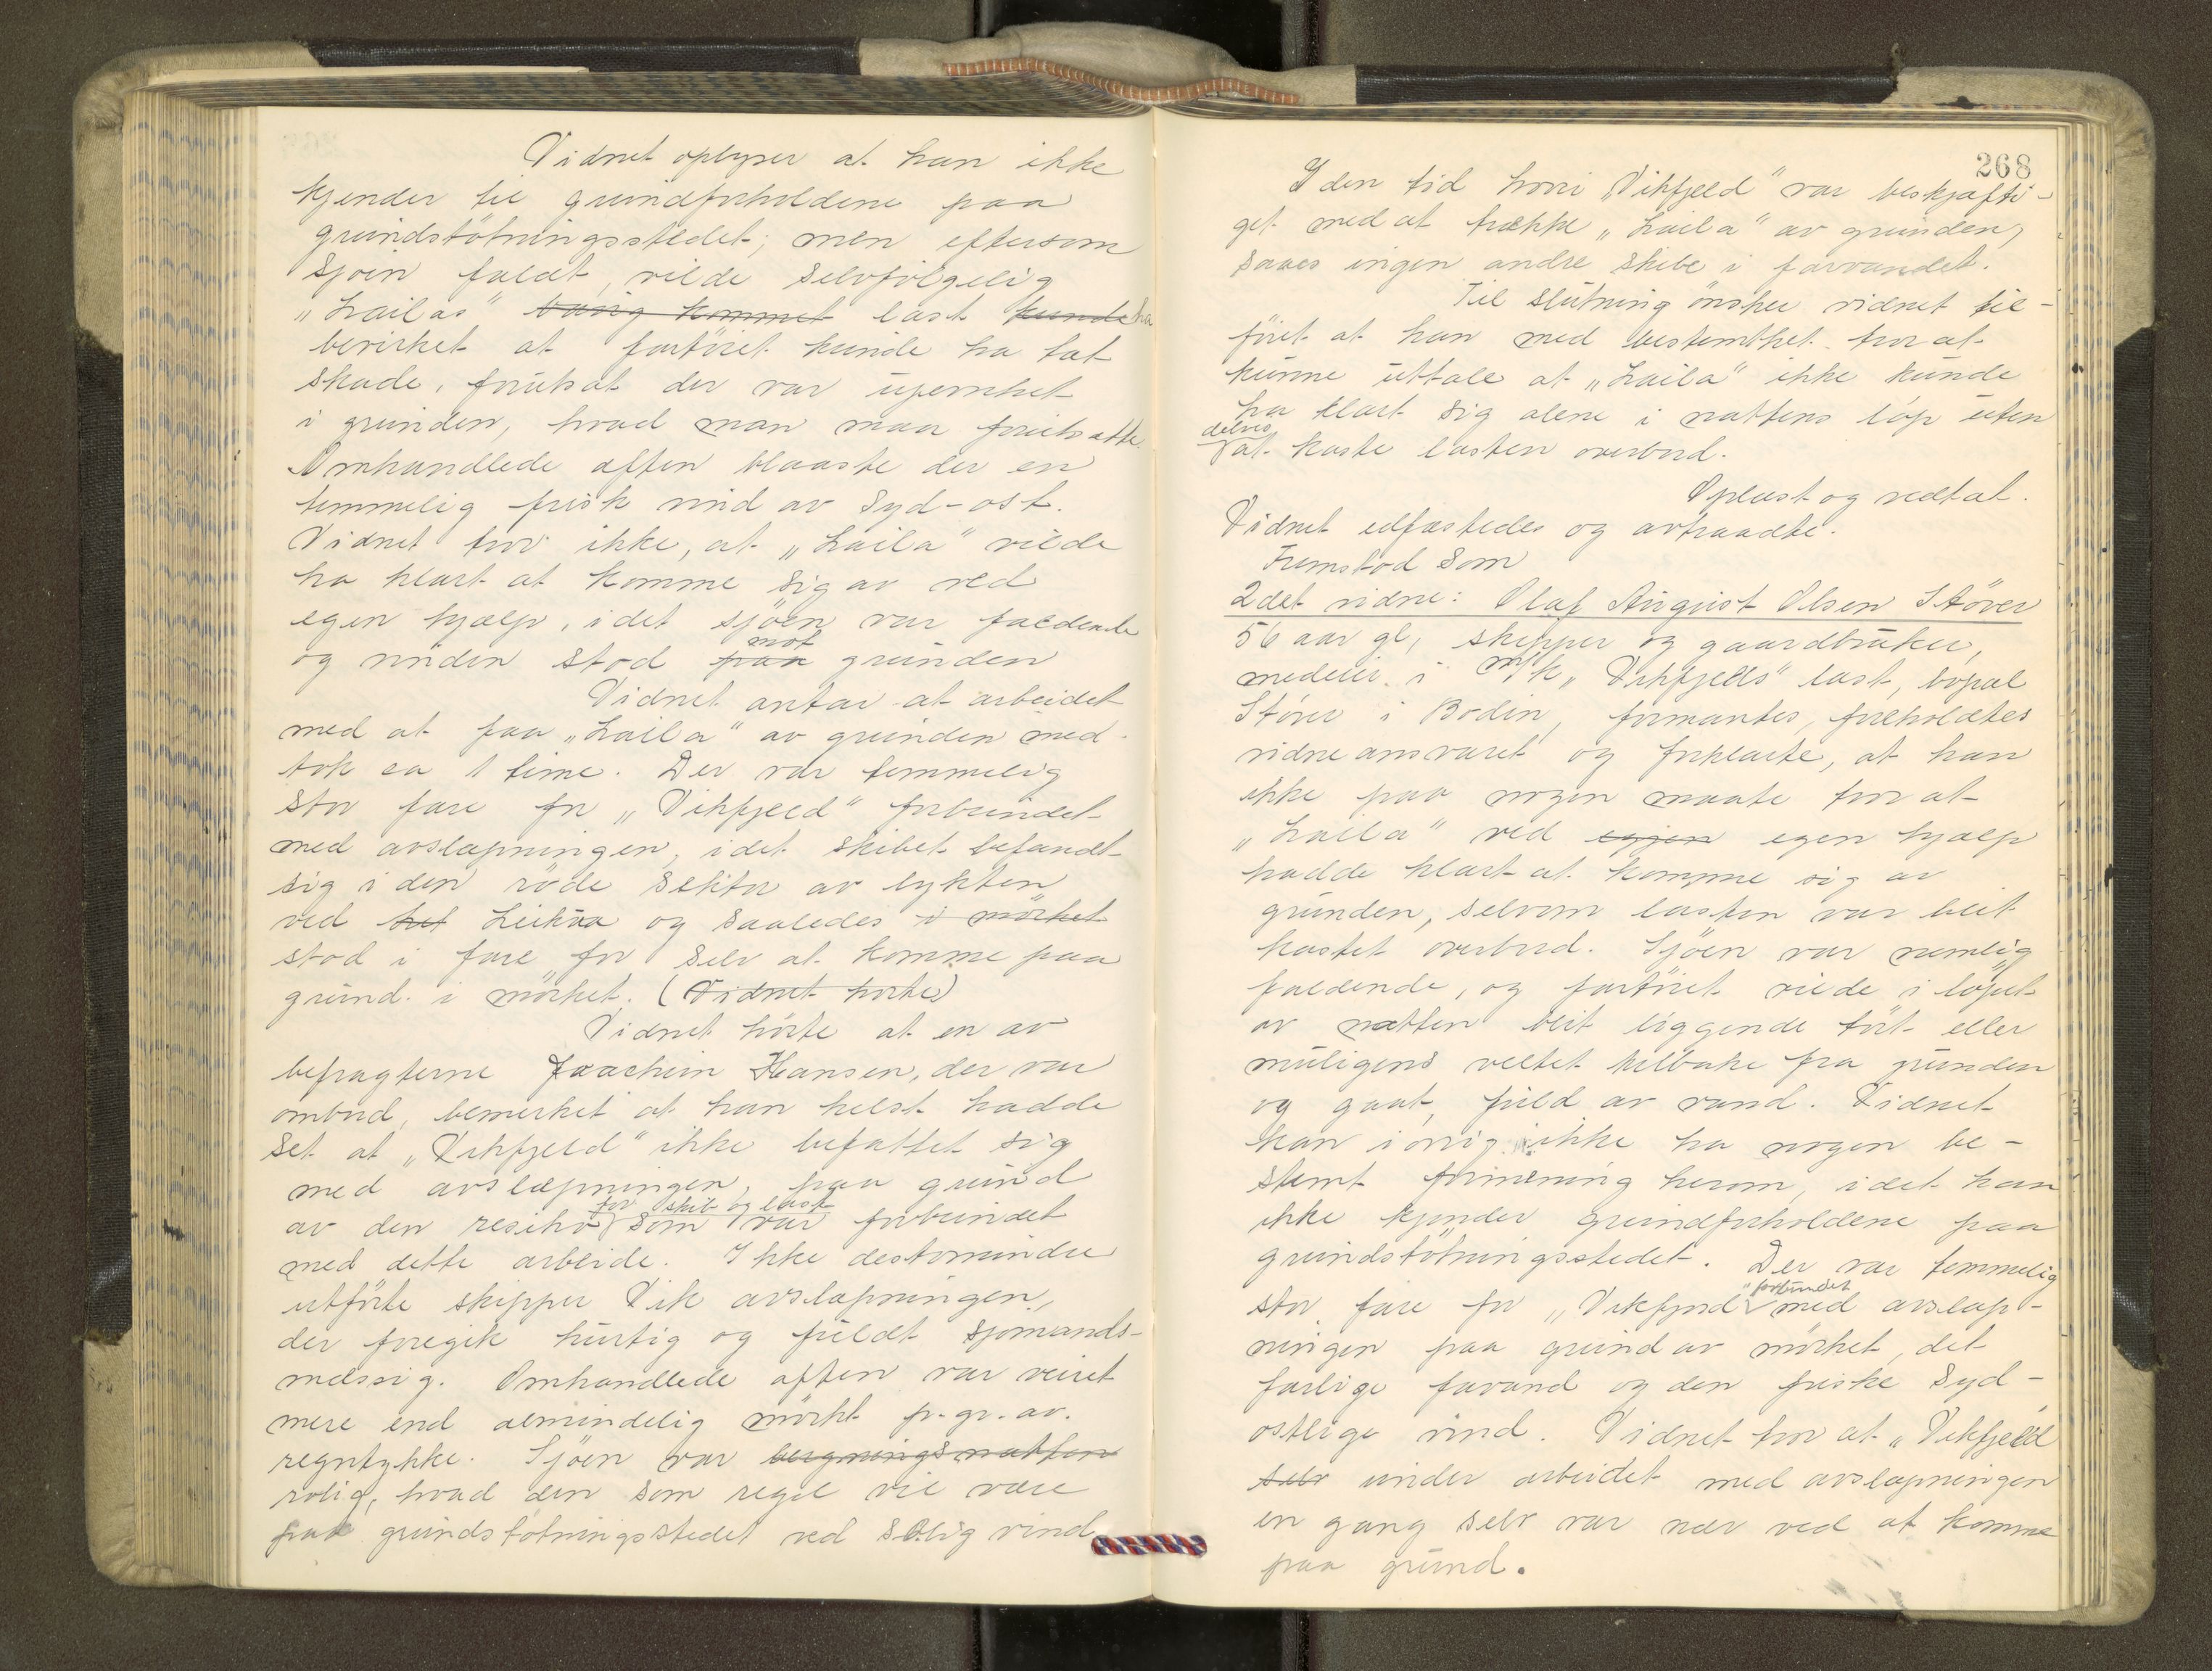 Vidnet oplyser at han ikke
kjender til grundforholdene paa
grundstötningsstedet; men eftersom
sjöen faldt, vilde selvfölgelig
"Lailas" last ha
bevirket at fartöiet kunde ha tat
skade, forutsat der var ujevnhet
i grunden, hvad man maa forutsætte.
Omhandlede aften blaaste der en
temmelig frisk vind av Syd-ost.
Vidnet tror ikke, at "Laila" vilde
ha klart at komme sig av ved
egen hjælp, idet sjöen var faldende
og vinden stod paa mot grunden
Vidnet antar at arbeidet
med at faa "Laila" av grunden med-
tok ca 1 time. Der var temmelig
stor fare for "Vikfjeld" forbundet
med avslæpningen, idet skibet befandt
sig i den röde sektor av lykten
ved het og saaledes i mörket
stod i fare for selv at komme paa
grund i mörket. (Vidnet hörte)
Vidnet hörte at en av
befragterne Joachim Hansen, der var
ombord, bemerket at han helst hadde
set at "Vikfjeld" ikke befattet sig
med avslæpningen, paa grund
av den resiko for skib og last som var forbundet
med dette arbeide. Ikke destomindre
utförte skipper Vik avslæpningen,
der foregik hurtig og fuldt sjömands-
mæssig. Omhandlede aften var veiret
mere end almindelig mörkt p.gr.av.
regntykke. Sjöen var bergningsnatten
rolig, hvad den som regel vil være
paa grundstötningsstedet ved SOlig vind.
268
I den tid hvori "Vikfjeld" var beskjæfti-
get med at trække "Laila" av grunden,
saaes ingen andre skibe i farvandet.
Til slutning önsker vidnet til-
föiet at han med bestemthet tror at
kunne uttale at "Laila" ikke kunde
ha klart sig alene i nattens löp uten
delvis at kaste lasten overbord.
Oplæst og vedtat.
Vidnet edfæstedes og avtraadte.
Fremstod som
2det vidne: Olaf August Olsen Støver
56 aar gl, skipper og gaardbruker,
medeier i M/k "Vikfjelds" last, bopæl
Støver i Bodin, formantes, foreholdtes
vidneansvaret og forklarte, at han
ikke paa nogen maate tror at
"Laila" ved egen hjælp
hadde klart at komme sig av
grunden, selvom lasten var blit
kastet overbord. Sjöen var nemlig
faldende, og fartöiet vilde i löpet
av natten blit liggende tört eller
muligens veltet tilbake fra grunden
og gaat fuld av vand. Vidnet
kan iövrig ikke ha nogen be-
stemt formening herom, idet han
ikke kjender grundforholdene paa
grundstötningsstedet. Der var temmelig
stor fare for "Vikfjord" forbundet med avslæp-
ningen paa grund av mörket, det
farlige favand og den friske Syd-
ostlige vind. Vidnet tror at "Vikfjeld
selv under arbeidet med avslæpningen
en gang selv var nær ved at komme
paa grund.